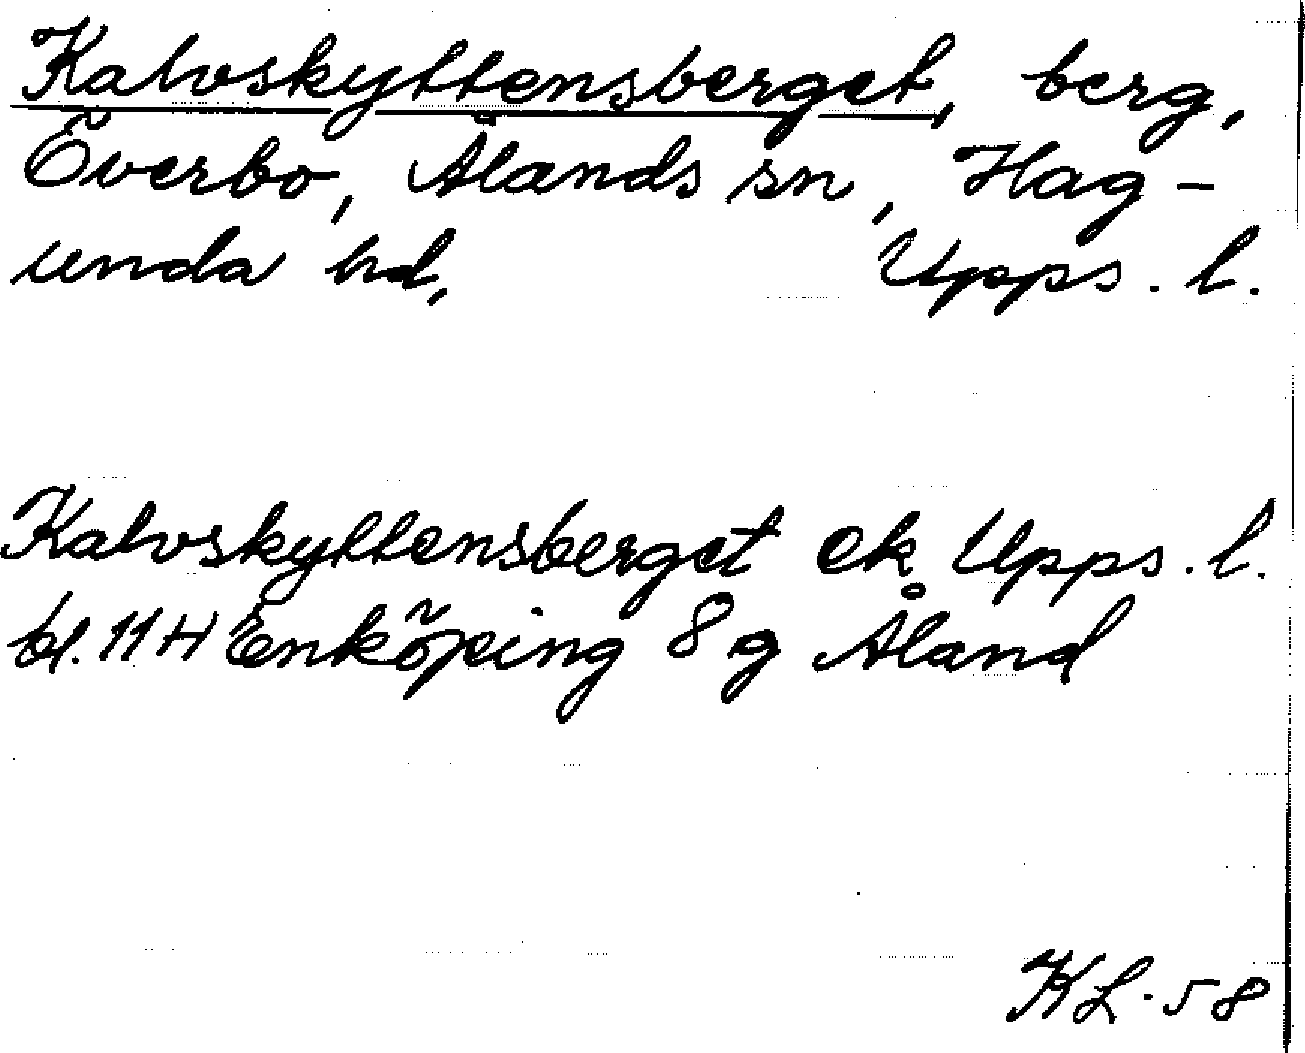 Kalvskyttensberget, berg,
Överbo, Ålands sn, Hag-
unda hd, Upps. l.
Kalvskyttensberget ek Upps. l.
bl. 11 H Enköping 8 g Åland
KL. 58